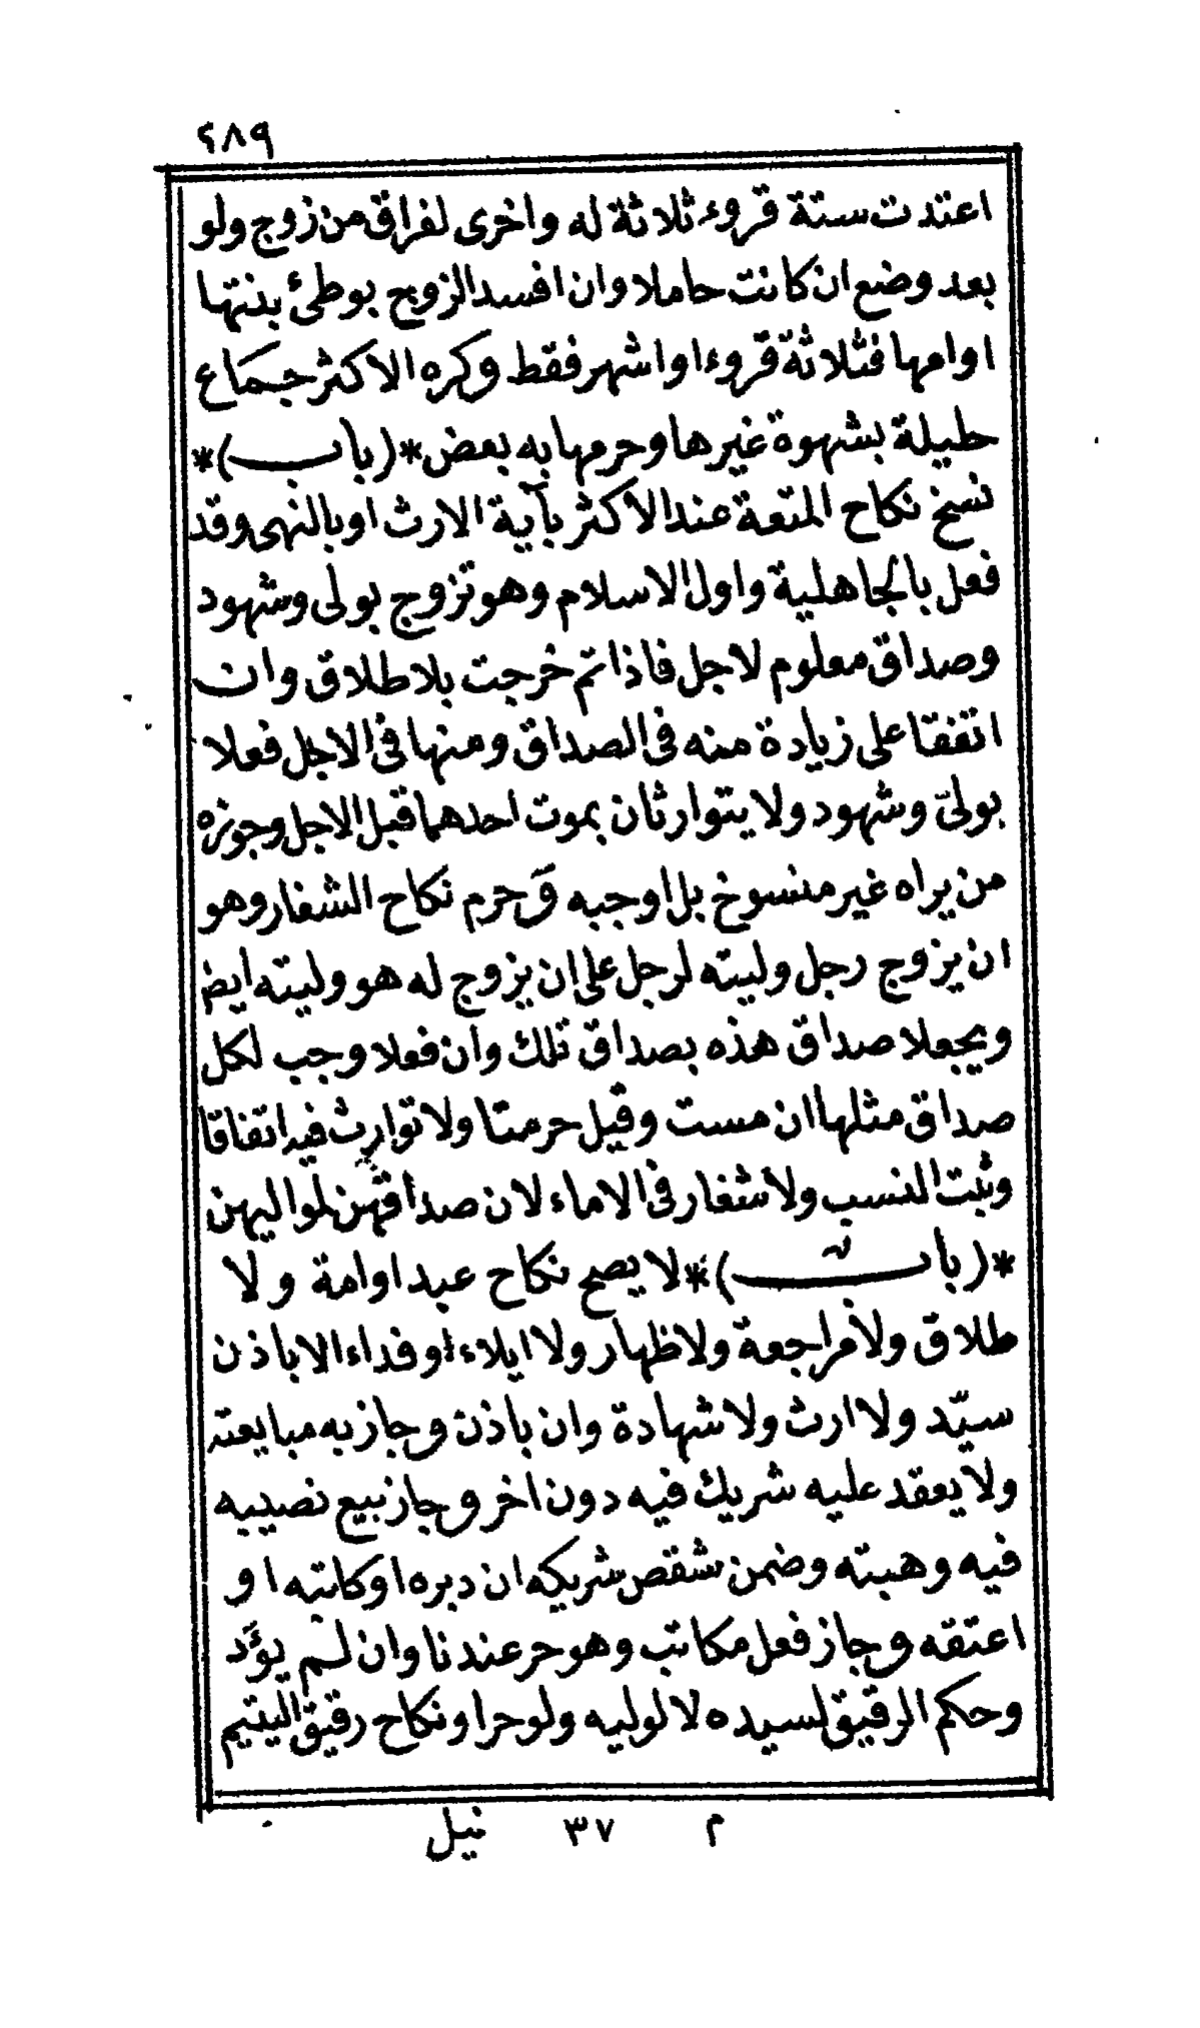 ٢٨٩
اعتدت ستة قروء ثلاثة له واخرى لفراق من زوج ولو
بعد وضع ان كانت حاملا وان افسد الزوج بوطئ بنتها
اوامها فثلاثة قروء اواشهر فقط وكره الاكثر جماع
حليلة بشهوة غيرها وحرمها به بعض *(باب)*
نسخ نكاح المتعة عند الاكثر بآية الارث او بالنهى وقد
فعل بالجاهلية واول الاسلام وهو تزوج بولى وشهود
وصداق معلوم لاجل فاذا تم خرجت بلا طلاق وان
اتفقا على زيادة منه فى الصداق ومنها فى الاجل فعلا
بولىّ وشهود ولا يتوارثان بموت احدهما قبل الاجل وجوزه
من يراه غير منسوخ بل اوجبه وَحرم نكاح الشغار وهو
ان يزوج رجل وليته لرجل على ان يزوج له هو وليته ايضا
ويجعلا صداق هذه بصداق تلك وان فعلا وجب لكل
صداق مثلها ان مست وقيل حرمتا ولا توارث فيه اتفاقا
وثبت النسب ولا شغار فى الاماء لان صداقهن لمواليهن
*(باب)* لا يصح نكاح عبد اوامة ولا
طلاق ولا مراجعة ولا ظهار ولا ايلاء او فداء الا باذن
سيّد ولا ارث ولا شهادة وان باذن وجاز به مبايعته
ولا يعقد عليه شريك فيه دون اخر وجاز بيع نصيبه
فيه وهبته وضمن شقص شريكه ان دبره اوكاتبه او
اعتقه وجاز فعل مكاتب وهو حر عندنا وان لم يؤَد
وحكم الرقيق لسيده لا لوليه ولو حرا ونكاح رقيق اليتيم
م ٣٧ نيل